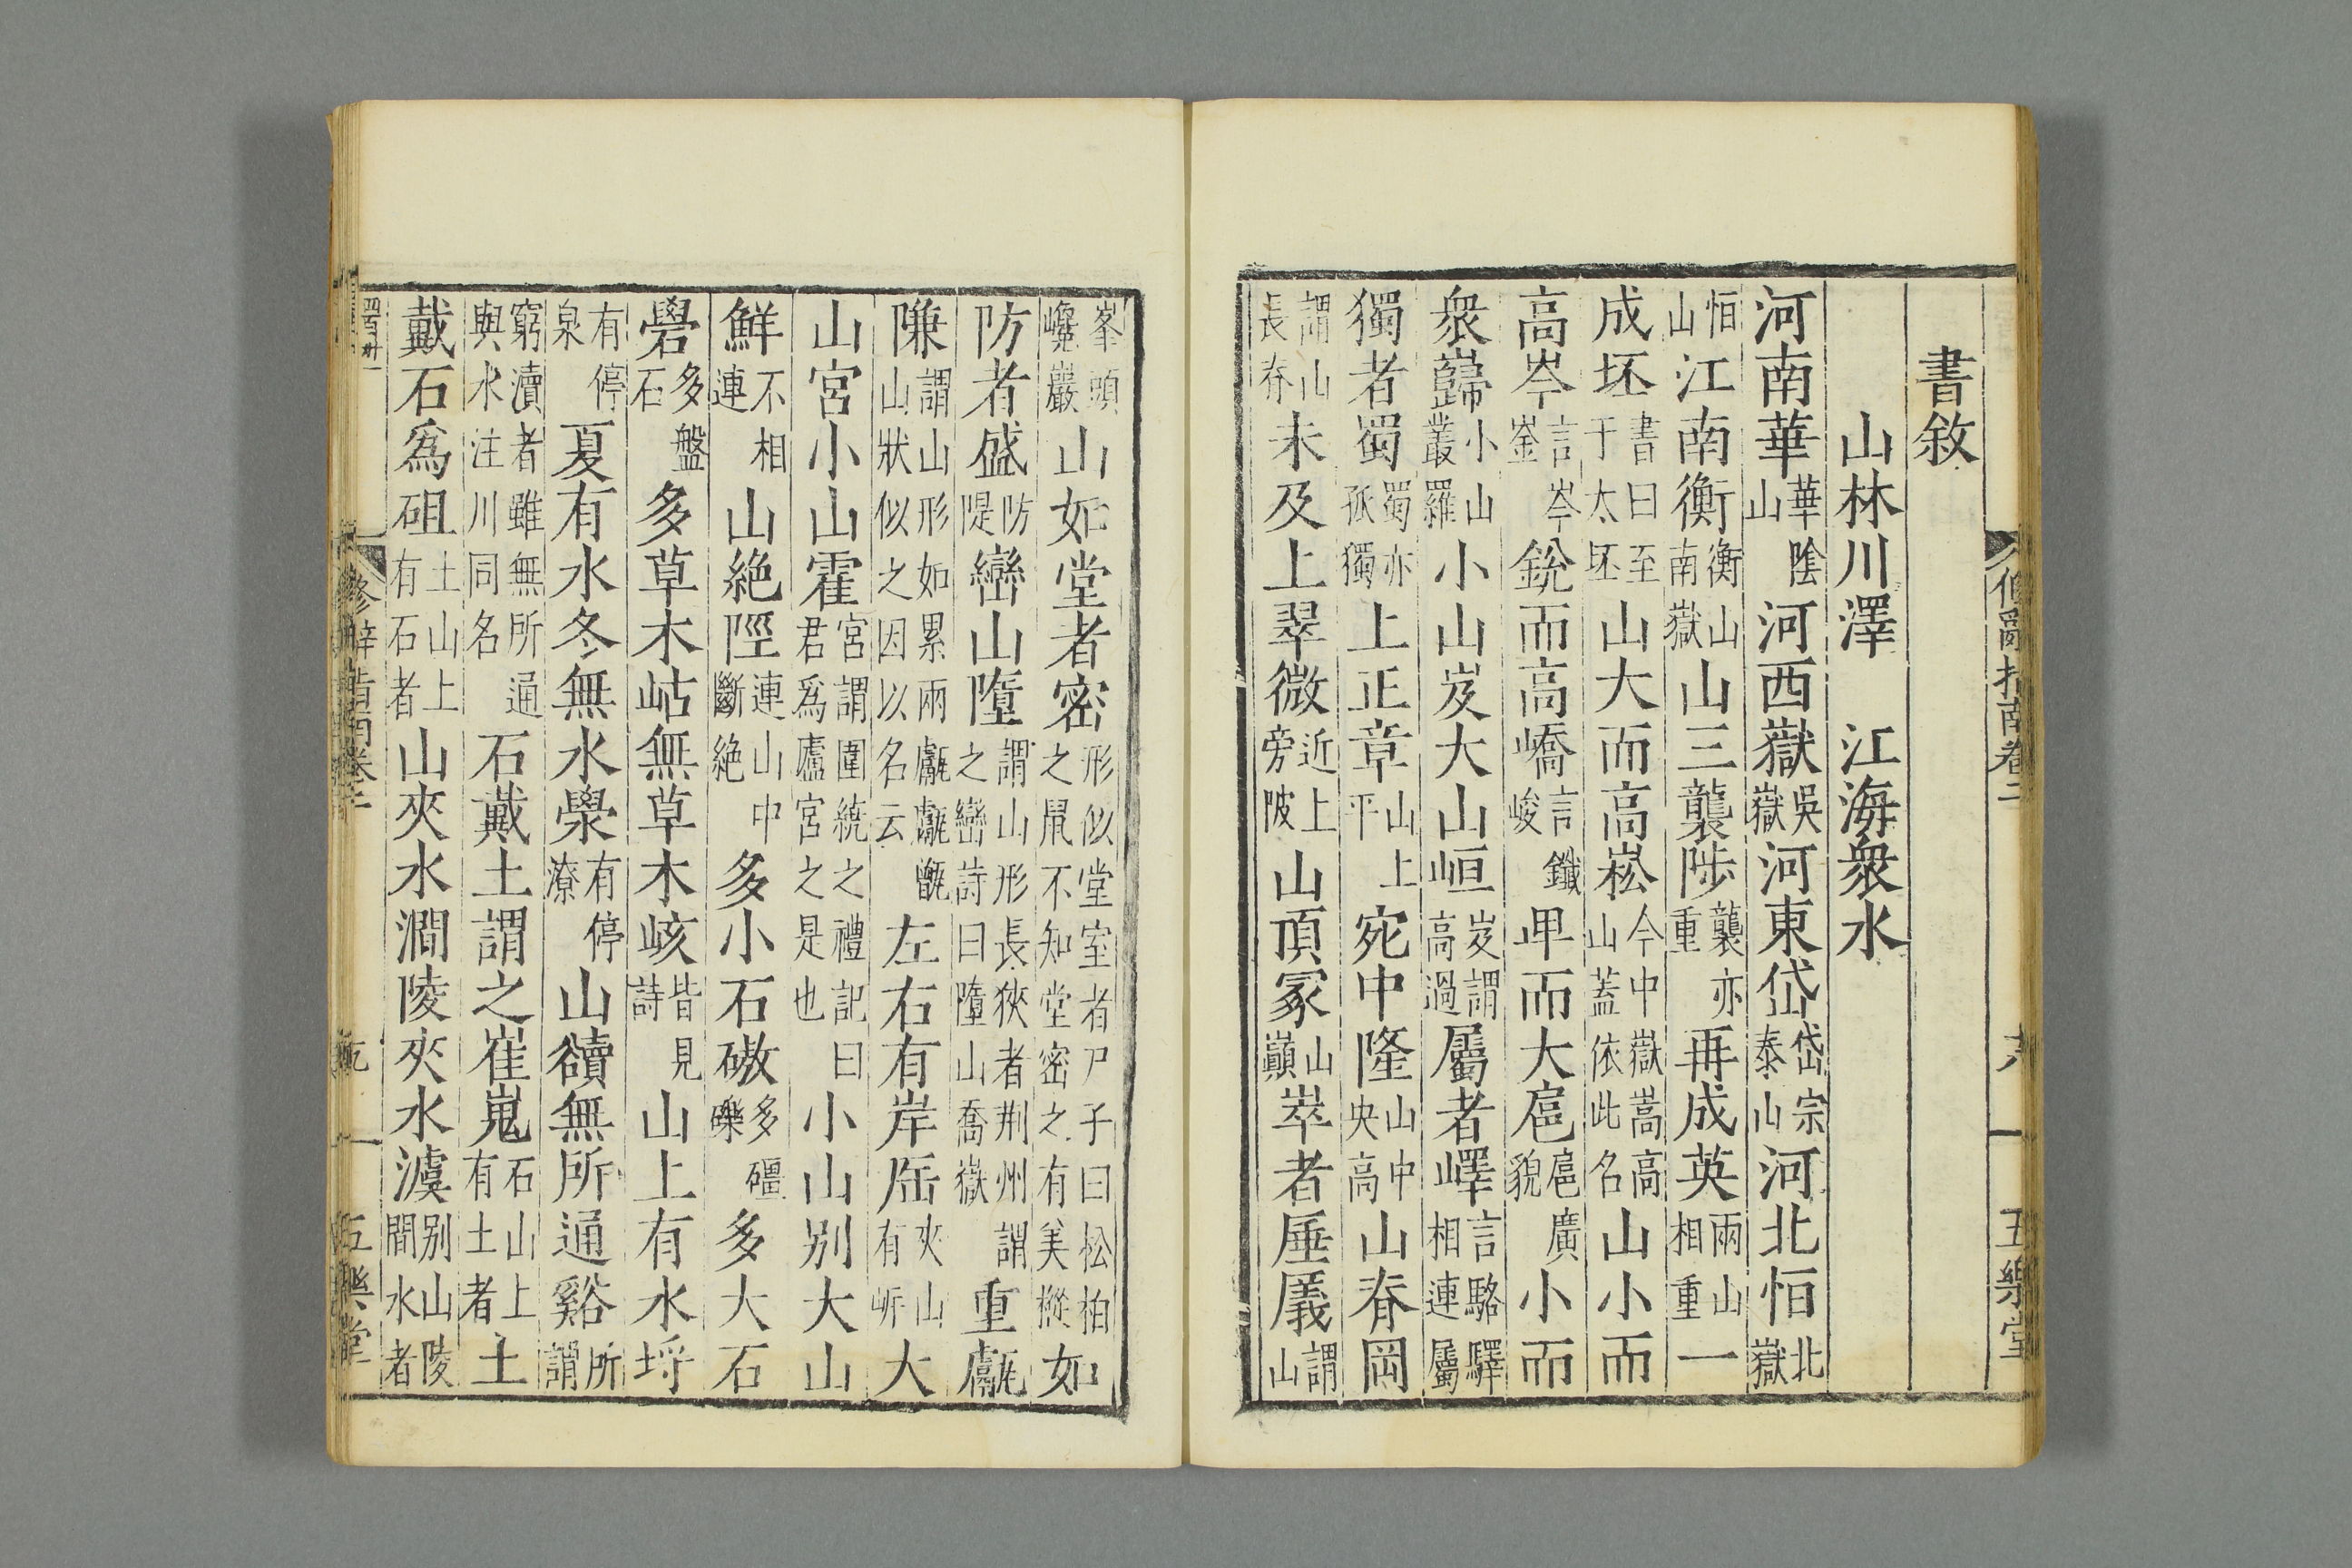 脩辭指南卷二 五樂堂
書敘
山林川澤 江海衆水
河南華華陰山河西嶽吳嶽河東岱岱宗泰山河北恒北嶽
恒山江南衡衡山南嶽山三襲陟襲亦重再成英兩山相重一
成坯書曰至于太坯山大而高崧今中嶽嵩高山蓋依此名山小而
高岑言岑崟銳而高嶠言鑯峻𤰞而大扈扈廣貌小而
衆巋小山叢羅小山岌大山峘岌謂高過屬者嶧言駱驛相連屬
獨者蜀蜀亦孤獨上正章山上平宛中隆山中央高山脊岡
謂山長脊未及上翠微近上旁陂山頂冢山巔崒者厜㕒謂山
峯頭巉巖山如堂者密形似堂室者尸子曰松柏之鼠不知堂密之有美樅如
防者盛防隄巒山墮謂山形長狹者荆州謂之巒詩曰墮山喬嶽重甗
隒謂山形如累兩甗甗甑山狀似之因以名云左右有岸厒夾山有岸大
山宮小山霍宮謂圍繞之禮記曰君爲廬宮之是也小山別大山
鮮不相連山絶陘連山中斷絶多小石磝多礓礫多大石
礐多盤石多草木岵無草木峐皆見詩山上有水埒
有停泉夏有水冬無水泶有停潦山豄無所通谿所謂
窮瀆者雖無所通與水注川同名石戴土謂之崔嵬石山上有土者土
戴石爲砠土山上有石者山夾水澗陵夾水澞別山陵間水者
脩辭指南卷二 五樂堂